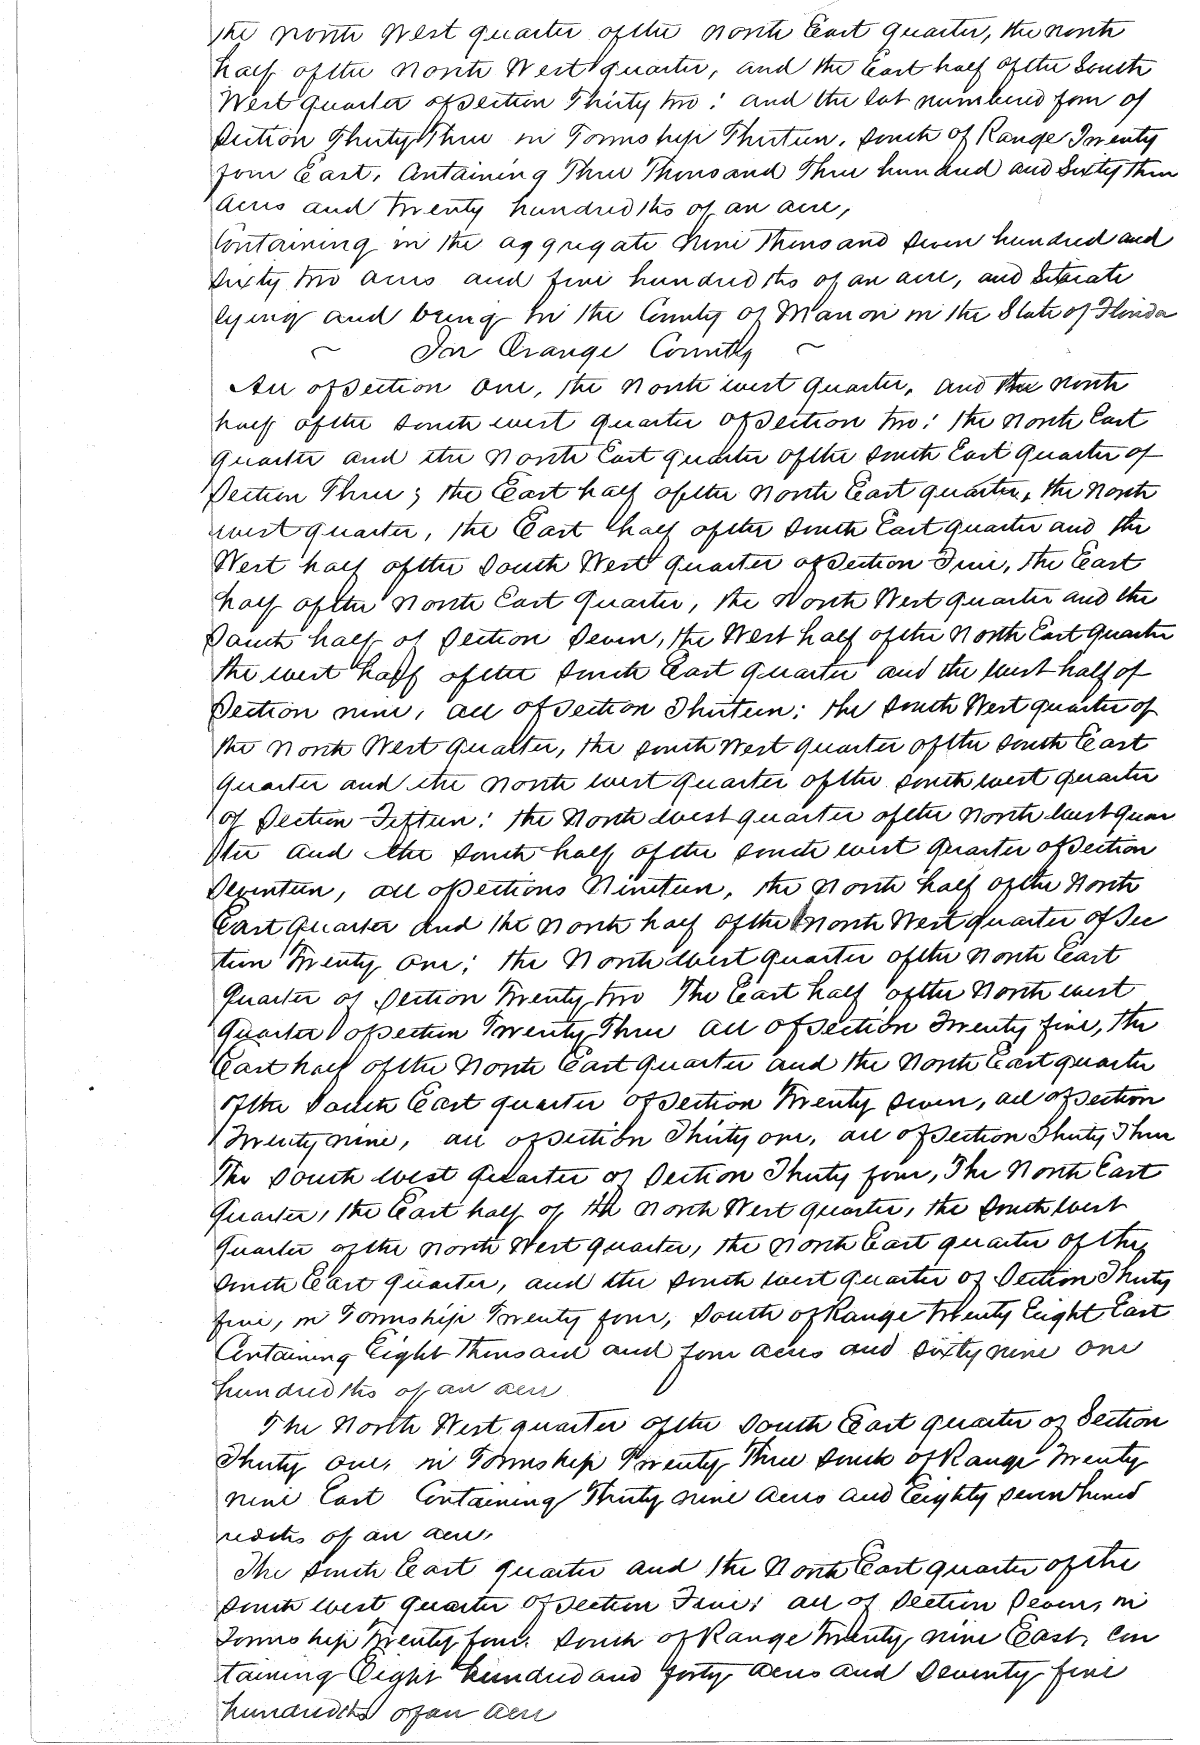 the North West quarter of the North East quarter, the North
half of the North West quarter, and the East half of the South
West quarter of Section Thirty two: and the lot numbered four of
Section Thirty Three in Township Thirteen, South of Range Twenty
four East, Containing Three Thousand Three hundred and Sixty Three
Acres and twenty hundredths of an acre,
Containing in the aggregate Nine thousand Seven hundred and
Sixty two acres and five hundredths of an acre, and Situate
lying and being in the County of Marion in the State of Florida
~ In Orange County ~
All of Section One, the North west quarter, and the North
half of the South west quarter of Section two: the North East
quarter and the North East quarter of the South East quarter of
Section Three; the East half of the North East quarter, the North
west quarter, the East half of the South East quarter and the
West half of the South West quarter of Section Five, the East
half of the North East quarter, the North West quarter and the
South half of Section Seven, the West half of the North East quarter
the west half of the South East quarter and the West half of
Section nine, all of Section Thirteen: the South West quarter of
the North West quarter, the South West quarter of the South East
quarter and the North west quarter of the South west quarter
of Section Fifteen: the North west quarter of the North West quar
ter and the South half of the South west quarter of Section
Seventeen, all of Sections Nineteen, the North half of the North
East quarter and the North half of the North West quarter of Sec
tion Twenty One; the North West quarter of the North East
quarter of Section Twenty two The East half of the North west
quarter of Section Twenty Three all of Section Twenty five, the
East half of the North East quarter and the North East quarter
of the South East quarter of Section Twenty Seven, all of Section
Twenty nine, all of Section Thirty one, all of Section Thirty Three
The South West quarter of Section Thirty four, The North East
quarter, the East half of the North West quarter, the South West
quarter of the North West quarter, the North East quarter of the
South East quarter, and the South West quarter of Section Thirty
five, in Township Twenty four, South of Range Twenty Eight East
Containing Eight Thousand and four acres and Sixty nine one
hundredths of an acre
The North West quarter of the South East quarter of Section
Thirty one, in Township Twenty Three South of Range Twenty
nine East Containing Thirty nine Acres and Eighty Seven hund
redths of an acre,
The South East quarter and the North East quarter of the
South west quarter of Section Five; all of Section Seven, in
Township Twenty four, South of Range Twenty nine East, Con
taining Eight hundred and forty acres and Seventy five
hundredths of an acre